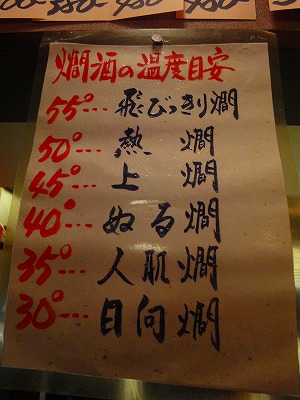 燗酒の温度目安
55°... 飛びっきり燗
50°... 熱燗
45°... 上燗
40°... ぬる燗
35°... 人肌燗
30°... 日向燗